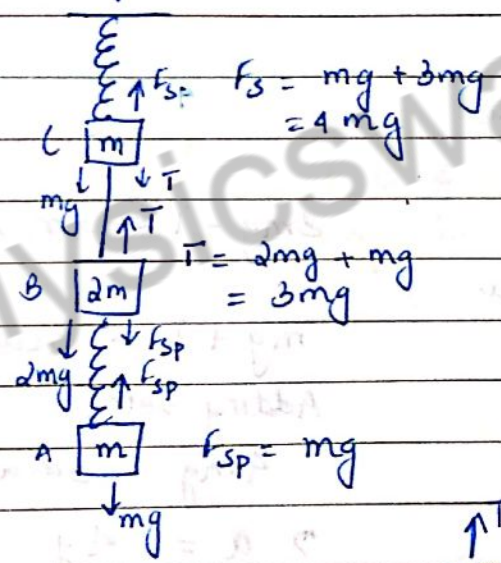 Fs = mg + 3mg
= 4 mg
Fs
C
m
mg
T
T
T = 2mg + mg
= 3mg
B
2m
Fsp
2mg
Fsp
A
m
Fsp = mg
mg